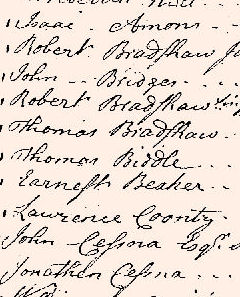 Isaac . Amons . . .
Robert Bradshaw
John - - Bridges . . .
Robert Bradshaw
Thomas Bradshaw . .
Thomas Biddle . . .
Earnest Beaker . . .
Lawrence Coonty .
John Cessna Esqr.
Jonathen Cessna . . .